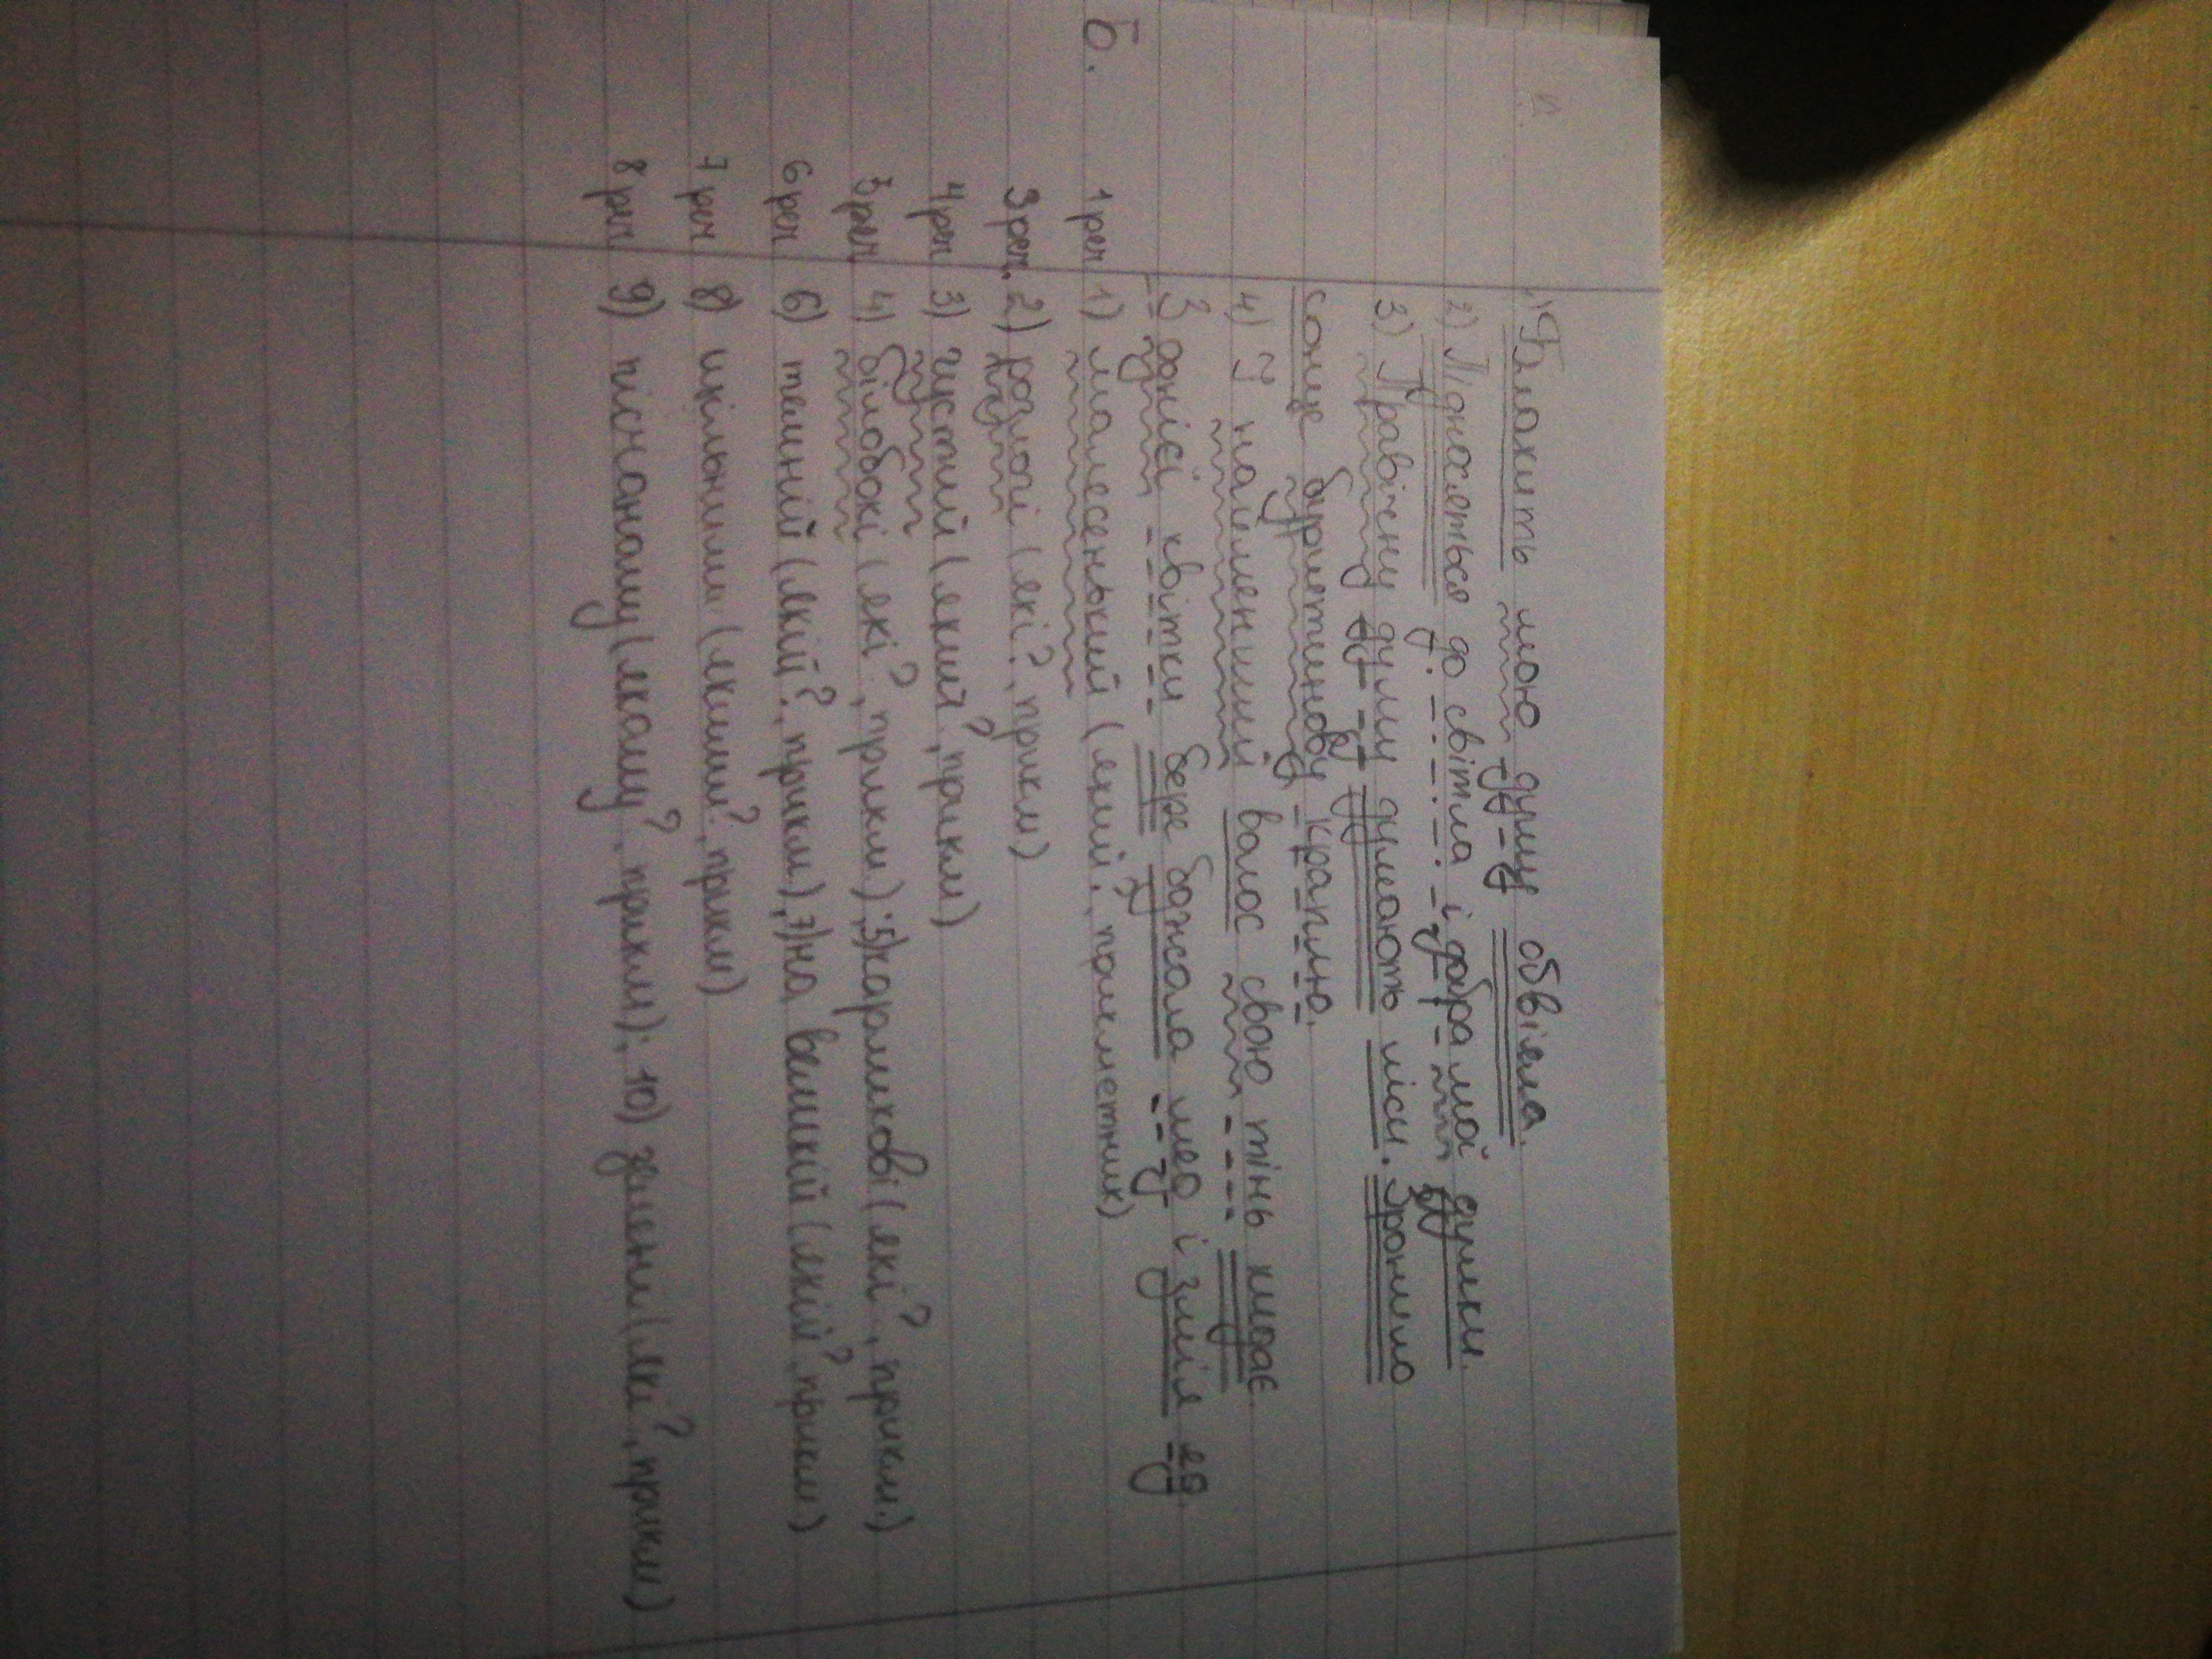 1) Блакить мою душу обвіяла.
2) Підносяться до світла і добра мої думки.
3) Правічну думу думають ліси. Зронило
сонце бурштинову краплю.
4) І найменший волос свою тінь кидає.
З однієї квітки бере бджола мед і змія яд.
Б.
1 реч 1) малесенький (який?, прикметник)
3 реч. 2) розлогі (які?, прикм)
4 реч 3) густий (який?, прикм)
5 реч 4) білобокі (які?, прикм); 5) карликові (які?, прикм.)
6 реч 6) темній (якій?, прикм), 7) на великій (якій?, прикм)
7 реч 8) щільними (якими?, прикм)
8 реч 9) пісчаному (якому?, прикм); 10) зелені (які?, прикм)